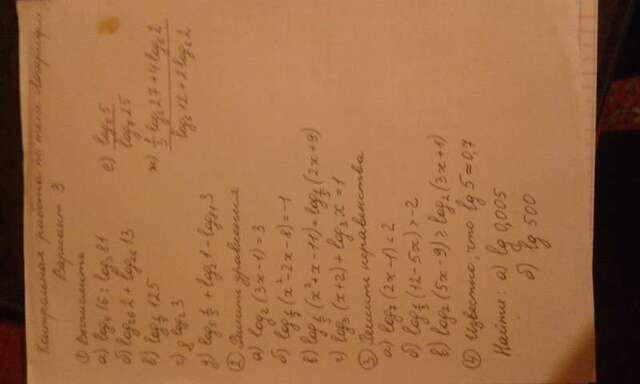 Контрольная работа по теме Логарифм
Вариант 3
① Вычислить
а) log₄16 : log₃81
б) log₂₆2 + log₂₆13
в) log 125
г) 8^(log₂3)
д) log₅ 1/5 + log₂1 − log₈₁3
е) log₇5 / log₇25
ж) (1/3 log₆27 + 4log₆2) / (log₆12 + 2log₆2)
② Решить уравнения
а) log₂(3x−1)=3
б) log (x²−2x−8)=−1
в) log (x²+x−11)=log (2x+9)
г) log₃(x+2)+log₃x=1
③ Решить неравенства
а) log₇(2x−1)<2
б) log_(1/3)(12−5x)>−2
в) log₂(5x−9)≥log₂(3x+1)
④ Известно, что lg5≈0,7
Найти: а) lg 0,005
б) lg 500